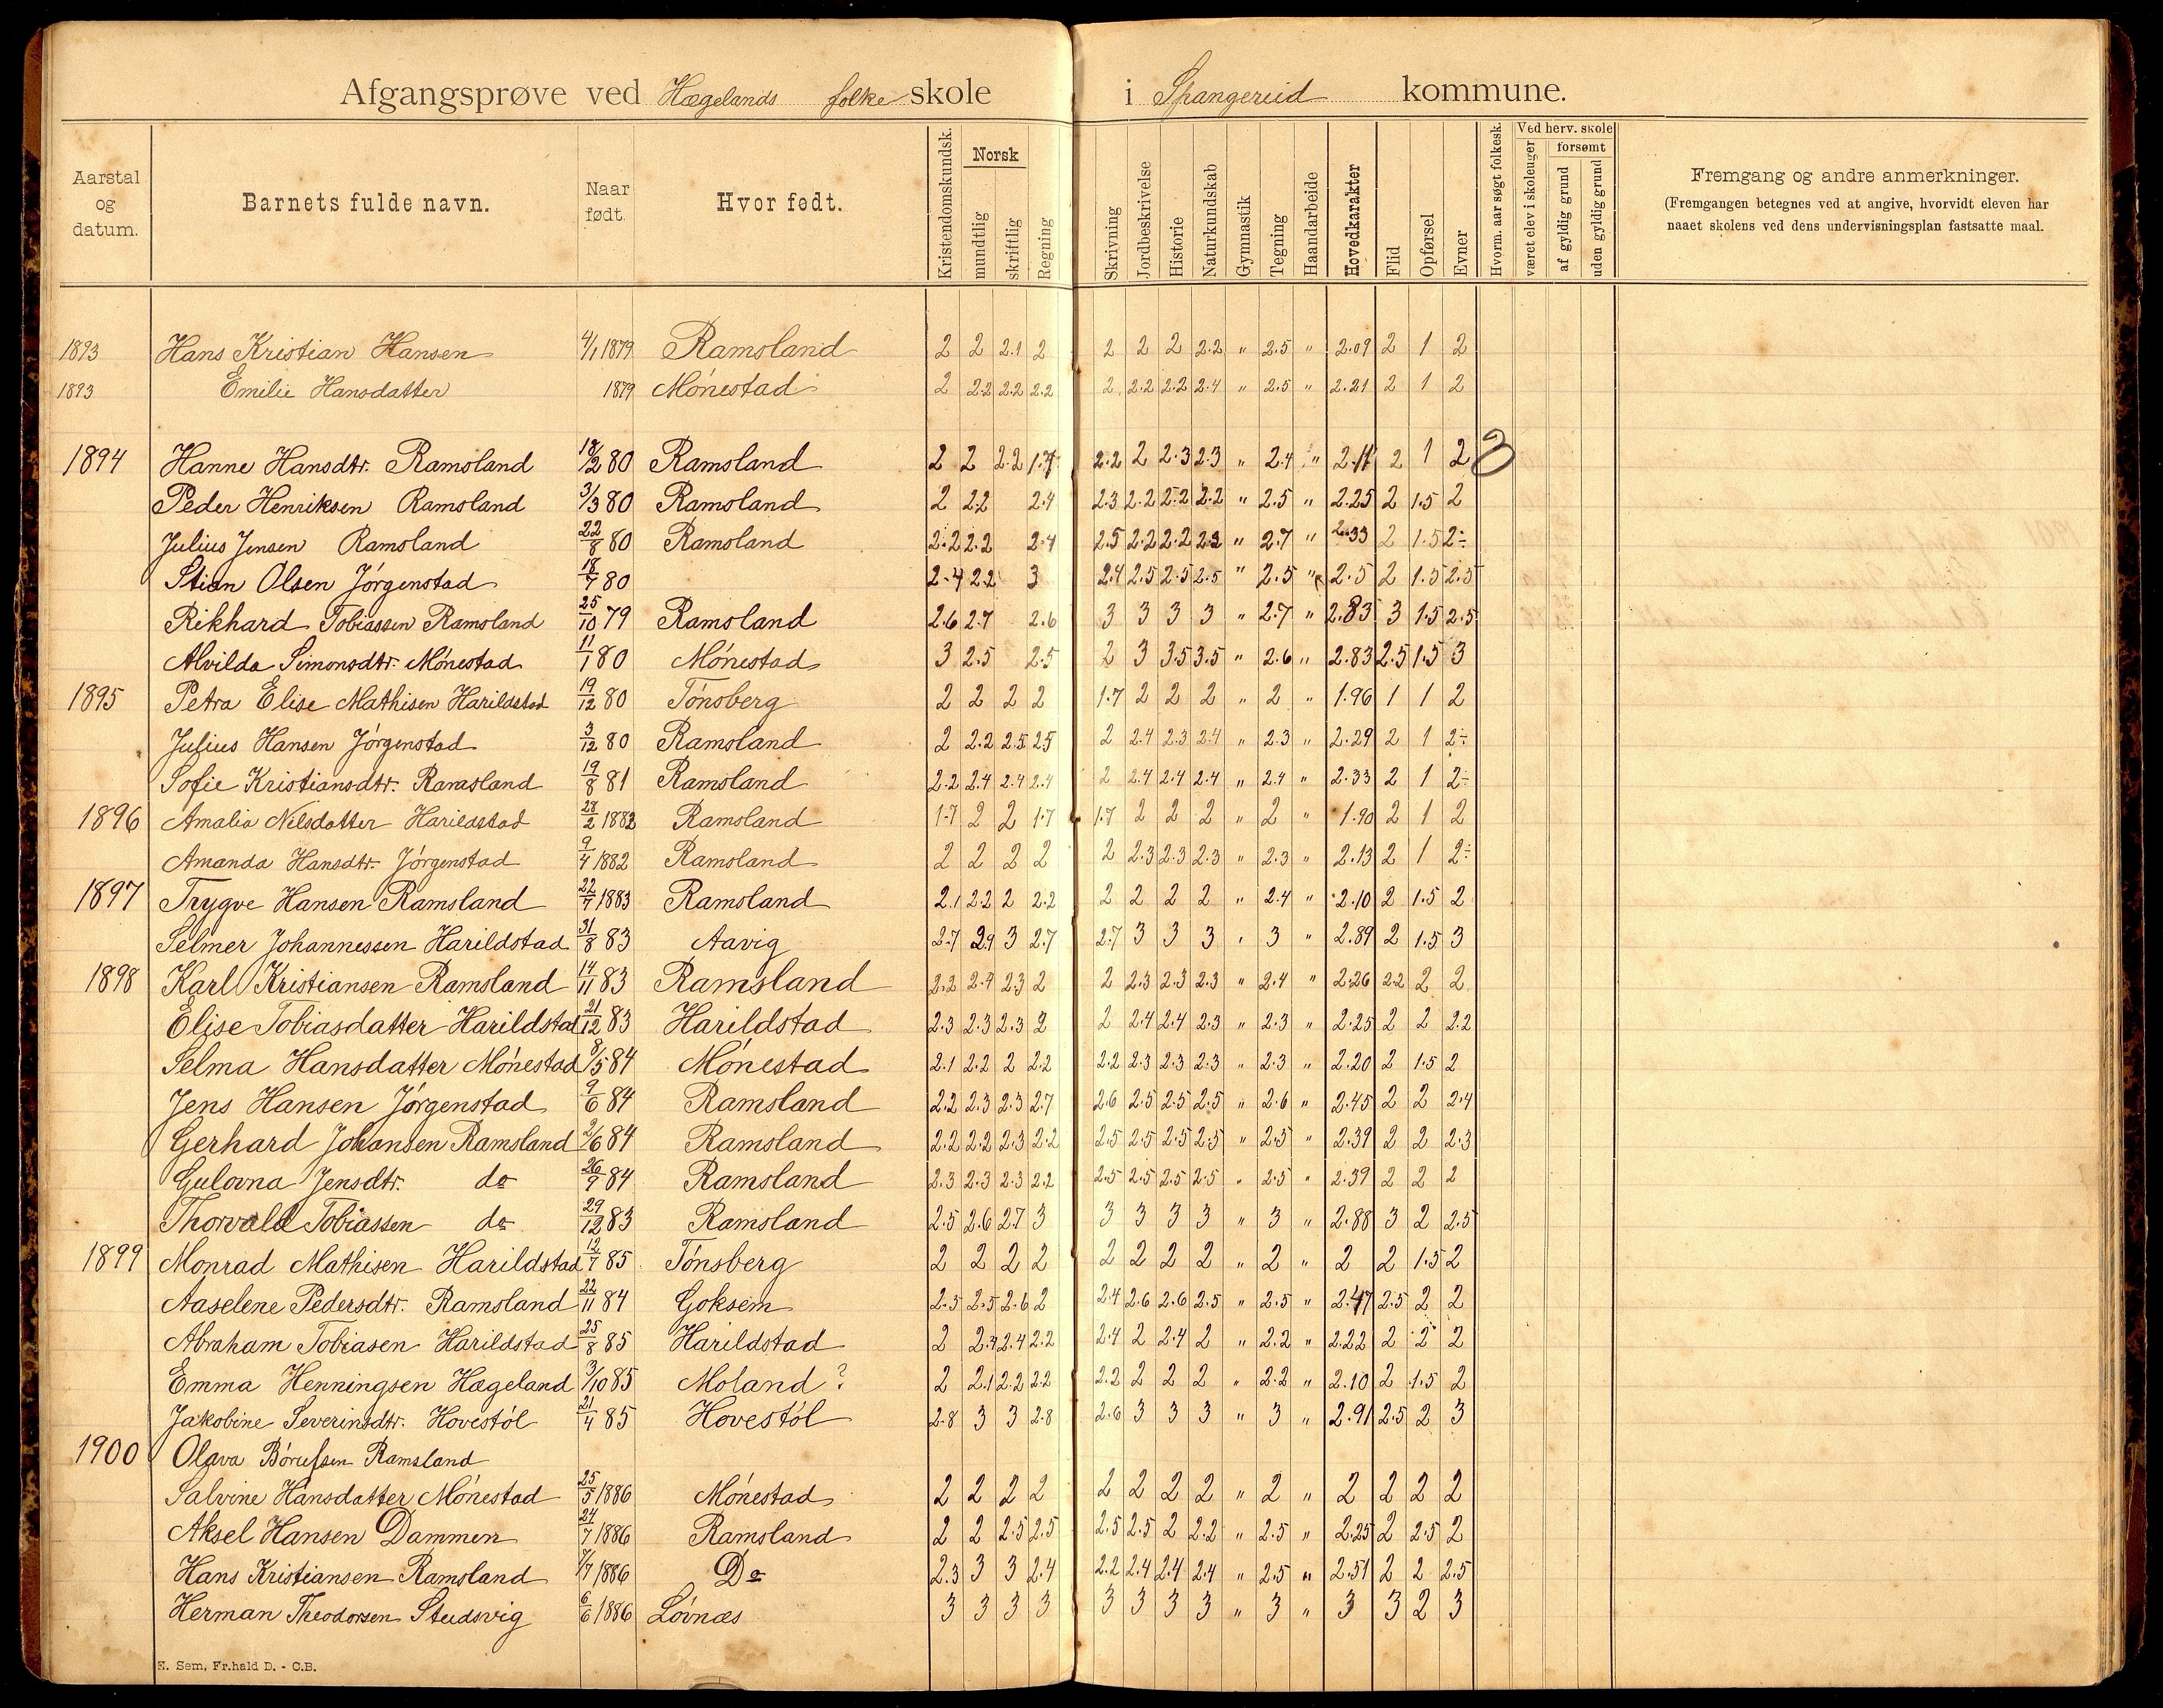 Afgangsprøve ved Hægelands folke skole i Spangereid kommune.
Aarstal og datum. Barnets fulde navn. Naar født. Hvor født. Kristendomskundsk. Norsk mundtlig skriftlig Regning Skrivning Jordbeskrivelse Historie Naturkundskab Gymnastik Tegning Haandarbeide Hovedkarakter Flid Opførsel Evner Hvorm. aar søgt folkesk. Ved herv. skole været elev i skoleuger forsømt af gyldig grund uden gyldig grund Fremgang og andre anmerkninger.
(Fremgangen betegnes ved at angive, hvorvidt eleven har
naaet skolens ved dens undervisningsplan fastsatte maal.
1893 Hans Kristian Hansen 4/1 1879 Ramsland 2 2 2.1 2 2 2 2 2.2 " 2.5 " 2.09 2 1 2
1893 Emilie Hansdatter 1879 Mónestad 2 2.2 2.2 2.2 2 2.2 2.2 2.4 " 2.5 " 2.21 2 1 2
1894 Hanne Hansdtr. Ramsland 18/2 80 Ramsland 2 2 2.2 1.7 2.2 2 2.3 2.3 " 2.4 " 2.11 2 1 2
Peder Henriksen Ramsland 3/3 80 Ramsland 2 2.2 2.4 2.3 2.2 2.2 2.2 " 2.5 " 2.25 2 1.5 2
Julius Jensen Ramsland 22/8 80 Ramsland 2.2 2.2 2.4 2.5 2.2 2.2 2.2 " 2.7 " 2.33 2 1.5 2÷
Stian Olsen Jórgenstad 18/7 80 2.4 2.2 3 2.4 2.5 2.5 2.5 " 2.5 " 2.5 2 1.5 2.5
Rikhard Tobiassen Ramsland 25/10 79 Ramsland 2.6 2.7 2.6 3 3 3 3 " 2.7 " 2.83 3 1.5 2.5
Alvilda Simonsdtr. Mónestad 11/1 80 Mónestad 3 2.5 2.5 2 3 3.5 3.5 " 2.6 " 2.83 2.5 1.5 3
1895 Petra Elise Mathisen Harildstad 19/12 80 Tónsberg 2 2 2 2 1.7 2 2 2 " 2 " 1.96 1 1 2
Julius Hansen Jórgenstad 3/12 80 Ramsland 2 2.2 2.5 2.5 2 2.4 2.3 2.4 " 2.3 " 2.29 2 1 2÷
Sofie Kristiansdtr. Ramsland 19/8 81 Ramsland 2.2 2.4 2.4 2.4 2 2.4 2.4 2.4 " 2.4 " 2.33 2 1 2÷
1896 Amalia Nilsdatter Harildstad 28/2 1882 Ramsland 1.7 2 2 1.7 1.7 2 2 2 " 2 " 1.90 2 1 2
Amanda Hansdtr. Jórgenstad 9/4 1882 Ramsland 2 2 2 2 2 2.3 2.3 2.3 " 2.3 " 2.13 2 1 2÷
1897 Trygve Hansen Ramsland 22/7 1883 Ramsland 2.1 2.2 2 2.2 2 2 2 2 " 2.4 " 2.10 2 1.5 2
Selmer Johannessen Harildstad 31/8 83 Aavig 2.7 2.9 3 2.7 2.7 3 3 3 " 3 " 2.89 2 1.5 3
1898 Karl Kristiansen Ramsland 14/11 83 Ramsland 2.2 2.4 2.3 2 2 2.3 2.3 2.3 " 2.4 " 2.26 2.2 2 2
Elise Tobiasdatter Harildstad 21/12 83 Harildstad 2.3 2.3 2.3 2 2 2.4 2.4 2.3 " 2.3 " 2.25 2 2 2.2
Selma Hansdatter Mónestad 8/5 84 Mónestad 2.1 2.2 2 2.2 2.2 2.3 2.3 2.3 " 2.3 " 2.20 2 1.5 2
Jens Hansen Jórgenstad 9/6 84 Ramsland 2.2 2.3 2.3 2.7 2.6 2.5 2.5 2.5 " 2.6 " 2.45 2 2 2.4
Gerhard Johansen Ramsland 2/6 84 Ramsland 2.2 2.2 2.3 2.2 2.5 2.5 2.5 2.5 " 2.5 " 2.39 2 2 2.3
Gulovna Jensdtr. do 26/9 84 Ramsland 2.3 2.3 2.3 2.2 2.5 2.5 2.5 2.5 " 2.5 " 2.39 2 2 2
Thorvald Tobiassen do 29/12 83 Ramsland 2.5 2.6 2.7 3 3 3 3 3 " 3 " 2.88 3 2 2.5
1899 Monrad Mathisen Harildstad 12/7 85 Tónsberg 2 2 2 2 2 2 2 2 " 2 " 2 2 1.5 2
Aaselene Pedersdtr. Ramsland 22/11 84 Goksem 2.5 2.5 2.6 2 2.4 2.6 2.6 2.5 " 2.5 " 2.47 2.5 2 2
Abraham Tobiasen Harildstad 25/8 85 Harildstad 2 2.4 2.4 2.2 2.4 2 2.4 2 " 2.2 " 2.22 2 2 2
Emma Henningsen Hægeland 3/10 85 Moland? 2 2.1 2.2 2.2 2.2 2 2 2 " 2.2 " 2.10 2 1.5 2
Jakobine Severinsdtr. Hovestól 21/4 85 Hovestól 2.8 3 3 2.8 2.6 3 3 3 " 3 " 2.91 2.5 2 3
1900 Olava Bórufsen Ramsland
Salvine Hansdatter Mónestad 25/5 1886 Mónestad 2 2 2 2 2 2 2 2 " 2 " 2 2 2 2
Aksel Hansen Dammen 24/7 1886 Ramsland 2 2 2.5 2.5 2.5 2.5 2 2.2 " 2.5 " 2.25 2 2.5 2
Hans Kristiansen Ramsland 7/7 1886 Do 2.3 3 3 2.4 2.2 2.4 2.4 2.4 " 2.5 " 2.51 2 2 2.5
Herman Theodorsen Studsvig 6/6 1886 Lóvnæs 3 3 3 3 3 3 3 3 " 3 " 3 3 2 3
E. Sem, Fr.hald D. - C.B.